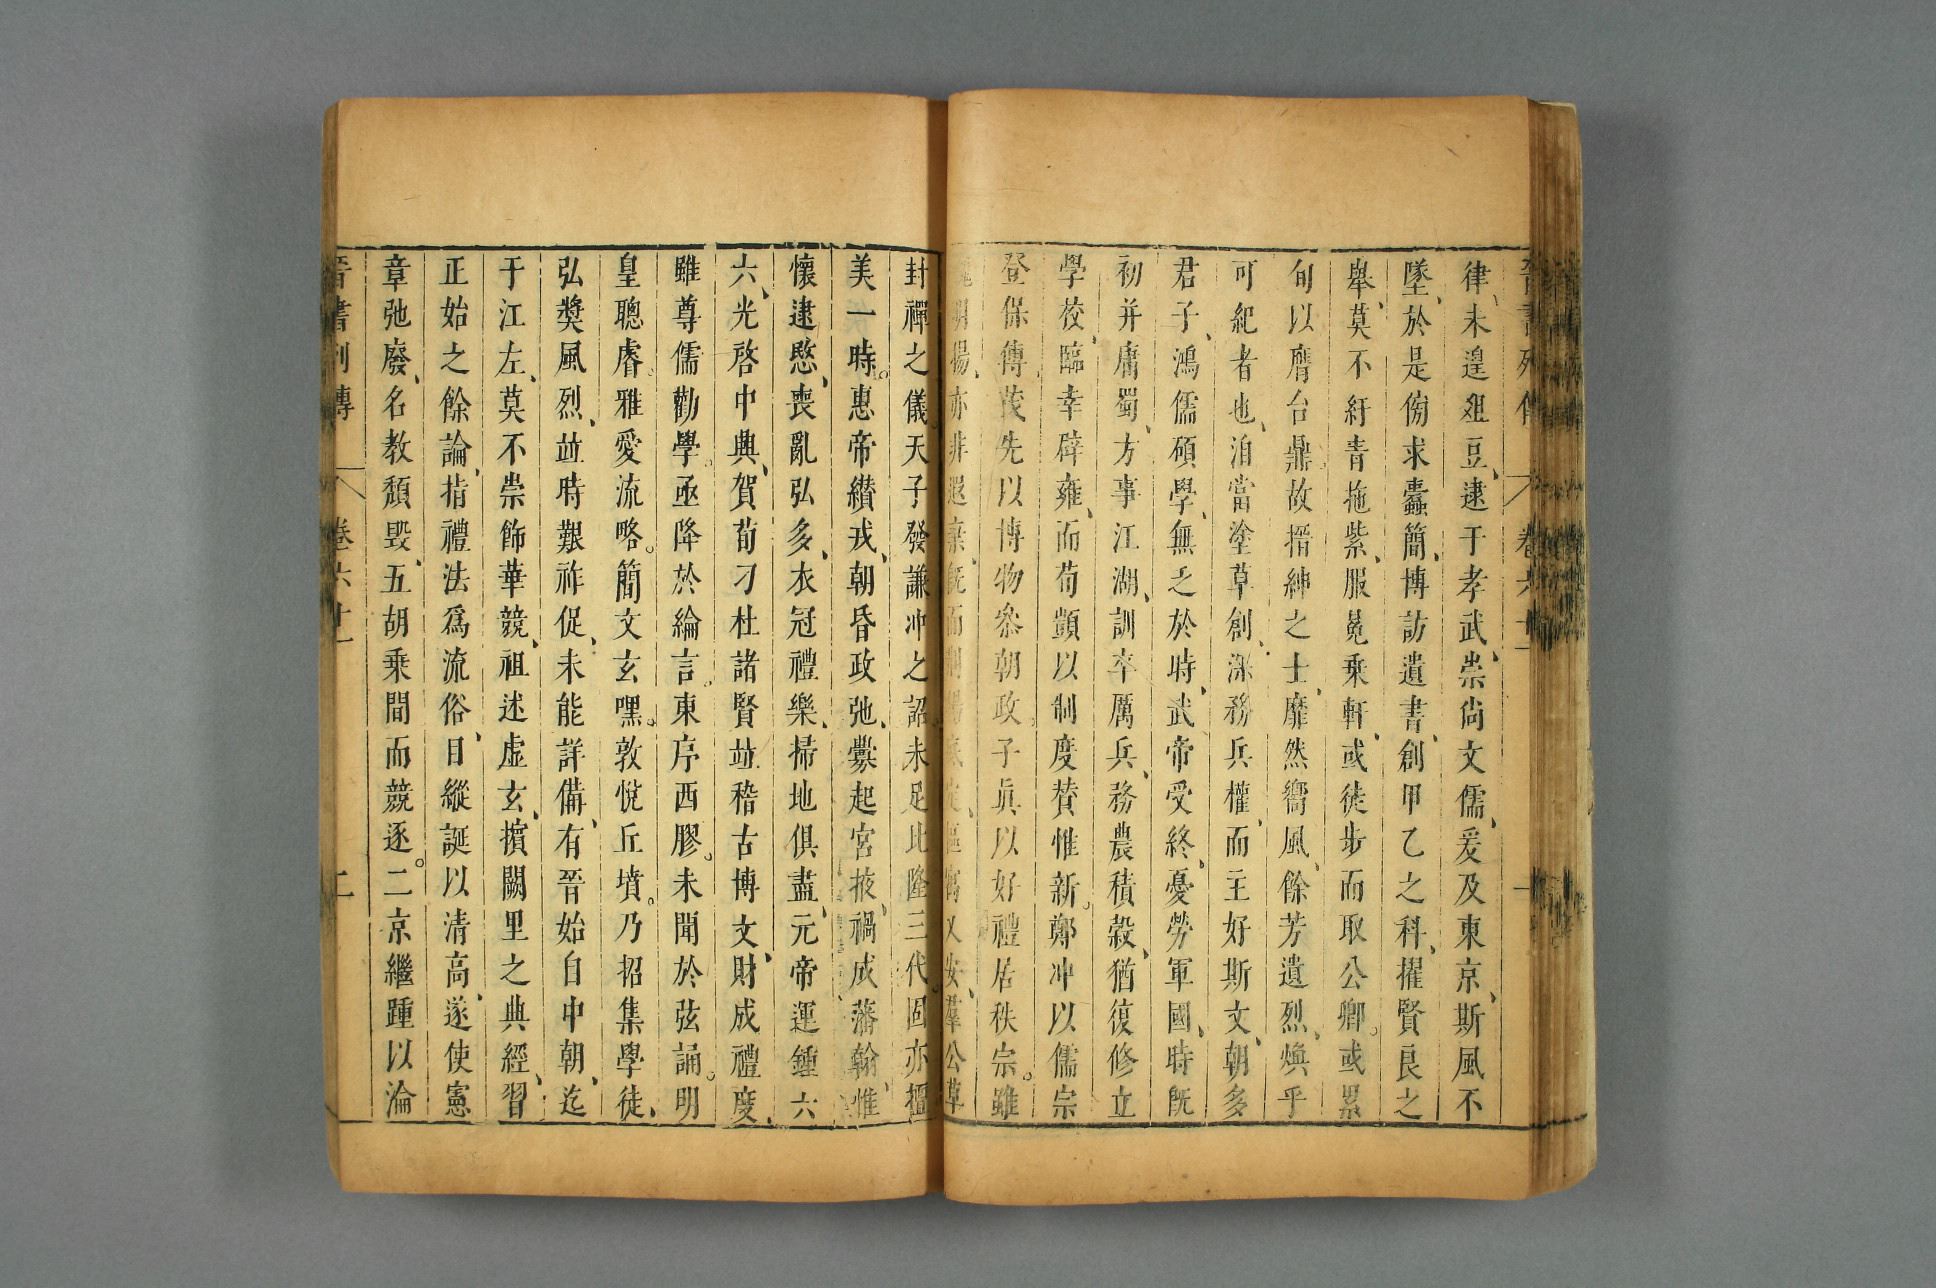 晉書列傳 卷六十一 一
律、未遑俎豆、逮于孝武、崇尚文儒、爰及東京、斯風不
墜、於是傍求蠹簡、博訪遺書、創甲乙之科、擢賢良之
舉、莫不紆青拖紫、服冕乘軒、或徒步而取公卿。或累
旬以膺台鼎。故搢紳之士、靡然嚮風、餘芳遺烈、煥乎
可紀者也、洎當塗草創、深務兵權、而主好斯文、朝多
君子、鴻儒碩學、無乏於時、武帝受終、憂勞軍國、時旣
初并庸蜀、方事江湖、訓卒厲兵、務農積穀、猶復修立
學校、臨幸辟雍、而荀顗以制度贊惟新。鄭冲以儒宗
登保傅、茂先以博物參朝政。子眞以好禮居秩宗。雖
明揚、亦非遐棄、旣而 安、羣公草
封禪之儀。天子發謙冲之詔、未足比隆三代。固亦擅
美一時。惠帝纘戎、朝昏政弛、釁起宮掖、禍成藩翰、惟
懷逮愍、喪亂弘多、衣冠禮樂、掃地俱盡、元帝運鍾六
六、光啓中興、賀荀刁杜諸賢並稽古博文、財成禮度、
雖尊儒勸學。亟降於綸言。東序西膠。未聞於弦誦。明
皇聰睿。雅愛流略。簡文玄嘿。敦悅丘墳。乃招集學徒、
弘獎風烈、並時艱祚促、未能詳備、有晉始自中朝、迄
于江左、莫不崇飾華競、祖述虛玄、擯闕里之典經、習
正始之餘論、指禮法爲流俗、目縱誕以清高、遂使憲
章弛廢、名教頹毀、五胡乘間而競逐。二京繼踵以淪
晉書列傳 卷六十一 二